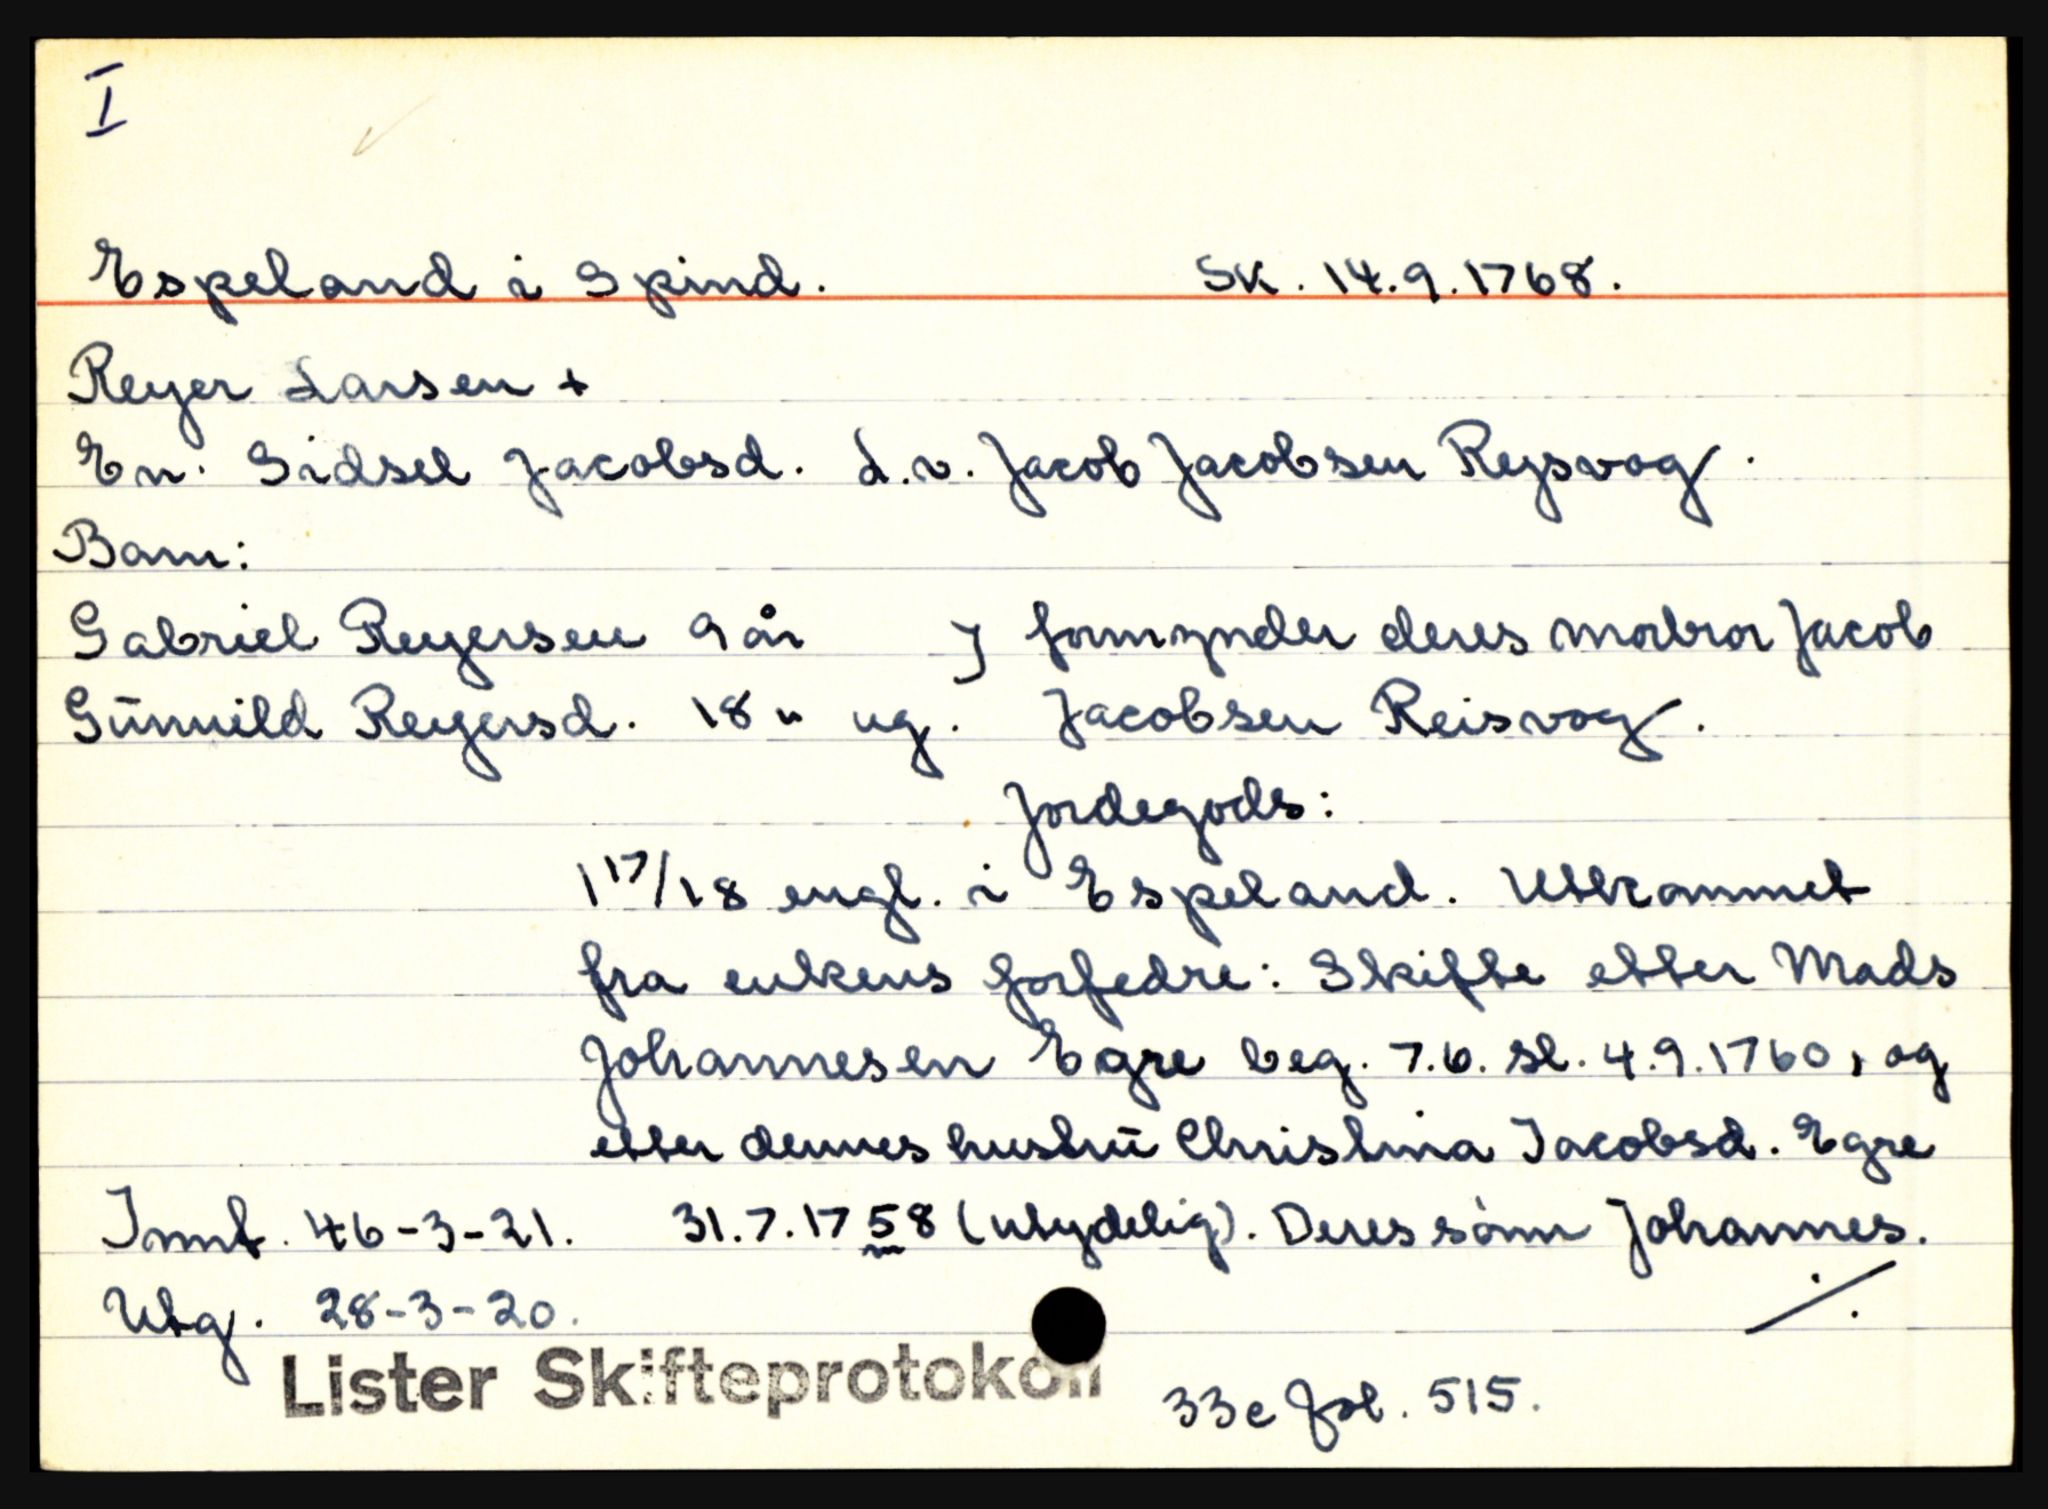 I
Espeland i Spind. SK. 14.9.1768.
Reyer Larsen +
En. Sidsel Jacobsd. L.v. Jacob Jacobsen Reysvog.
Barn:
Gabriel Reyersen 9 år } formynder deres morbror Jacob
Gūnnild Reyersd. 18 " ug. Jacobsen Reisvog.
Jordegods:
1 17/18 engl. i Espeland. Utkommet
fra enkens forfedre: Skifte etter Mads
Johannesen Egre beg. 7.6. sl. 4.9.1760, og
etter dennes hustrū Christina Jacobsd. Egre
Innt. 46-3-21. 31.7.1758 (utydelig). Deres sønn Johannes.
Utg. 28-3-20. ./.
Lister Skifteprotokoll 33c fol. 515.